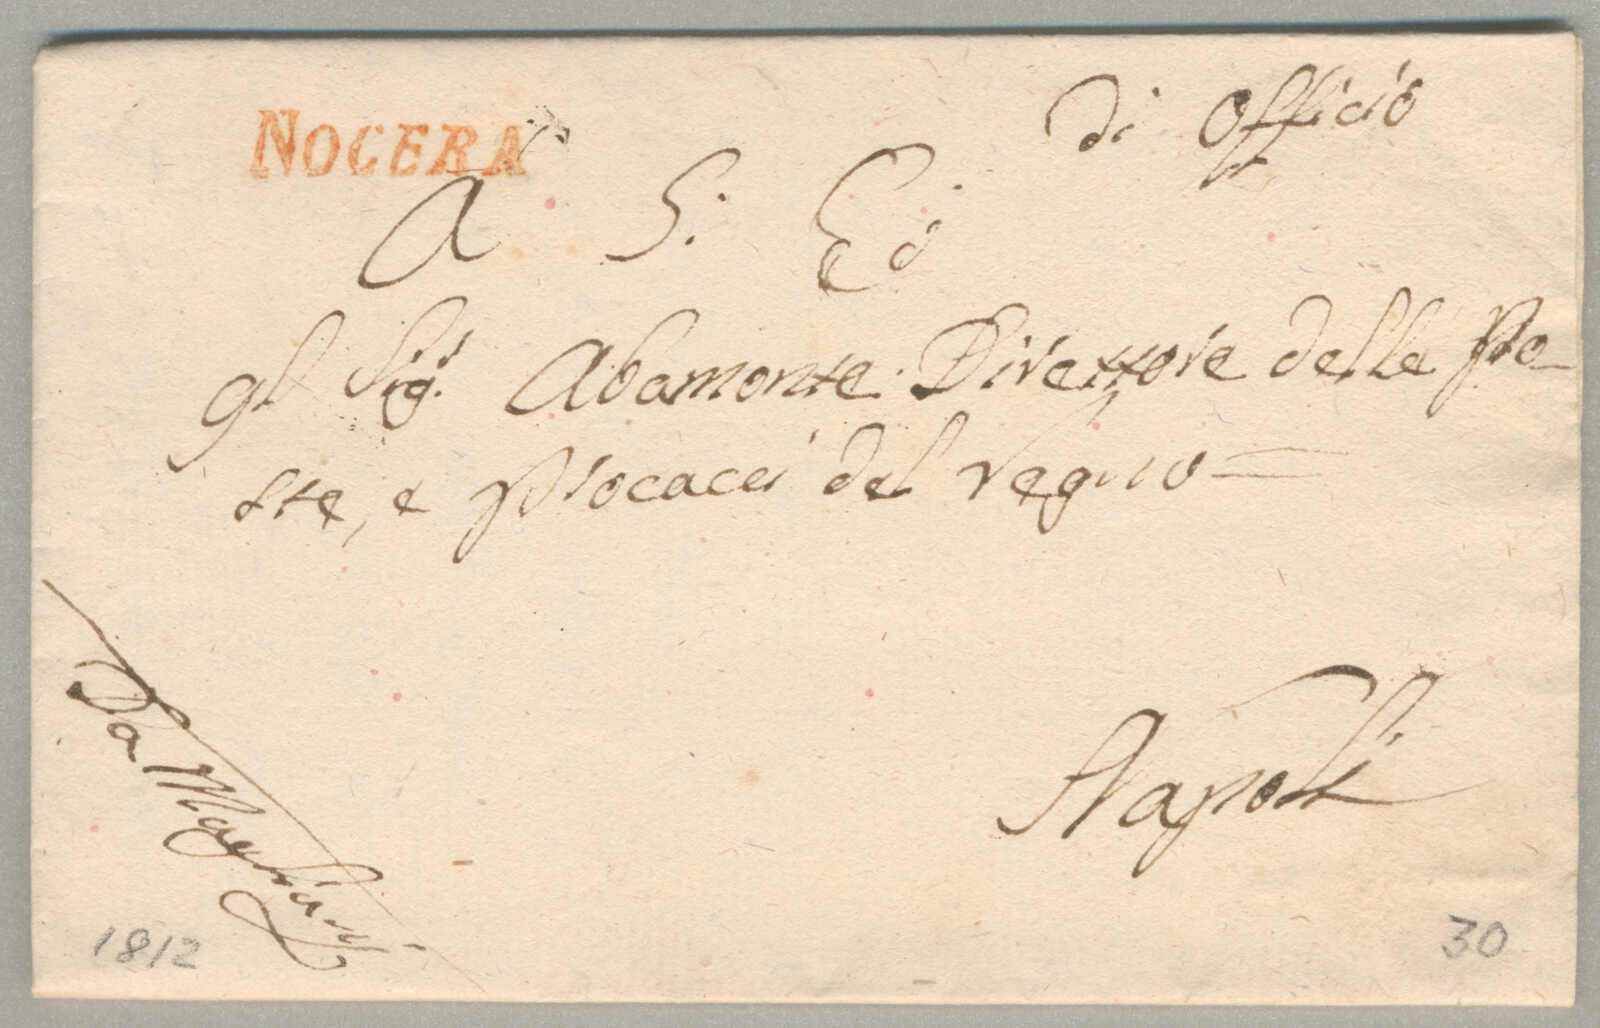 NOCERA
di Officio
A S. E.
Al Sig.r Abamonte Direttore delle Po-
ste, e Procacci del regno =
Napoli
Da
1812
30